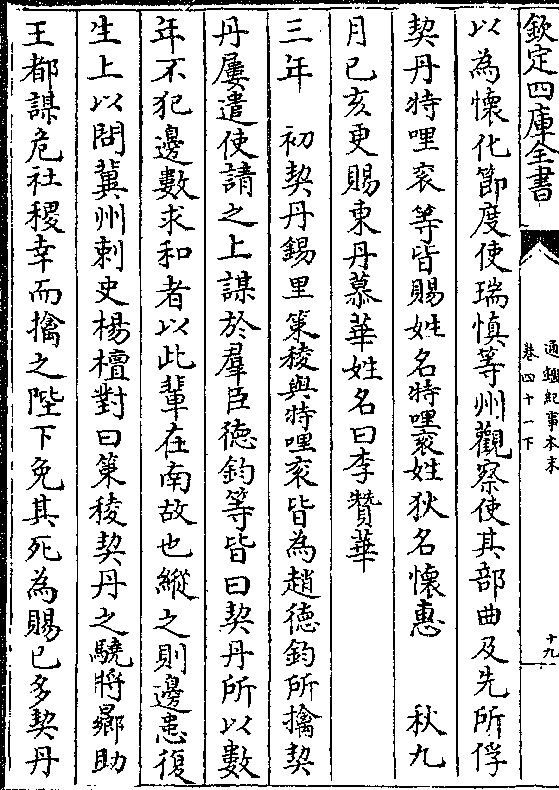 欽定四庫全書
通鑑紀事本末
卷四十一下
十九
以為懷化節度使瑞慎等州觀察使其部曲及先所俘
契丹特哩衮等皆賜姓名特哩衮姓狄名懷惠　秋九
月已亥更賜東丹慕華姓名曰李贊華
三年　初契丹錫里策稜與特哩衮皆為趙德鈞所擒契
丹屢遣使請之上謀於羣臣德鈞等皆曰契丹所以數
年不犯邊數求和者以此輩在南故也縱之則邊患復
生上以問冀州刺史楊檀對曰策稜契丹之驍將曏助
王都謀危社稷幸而擒之陛下免其死為賜已多契丹